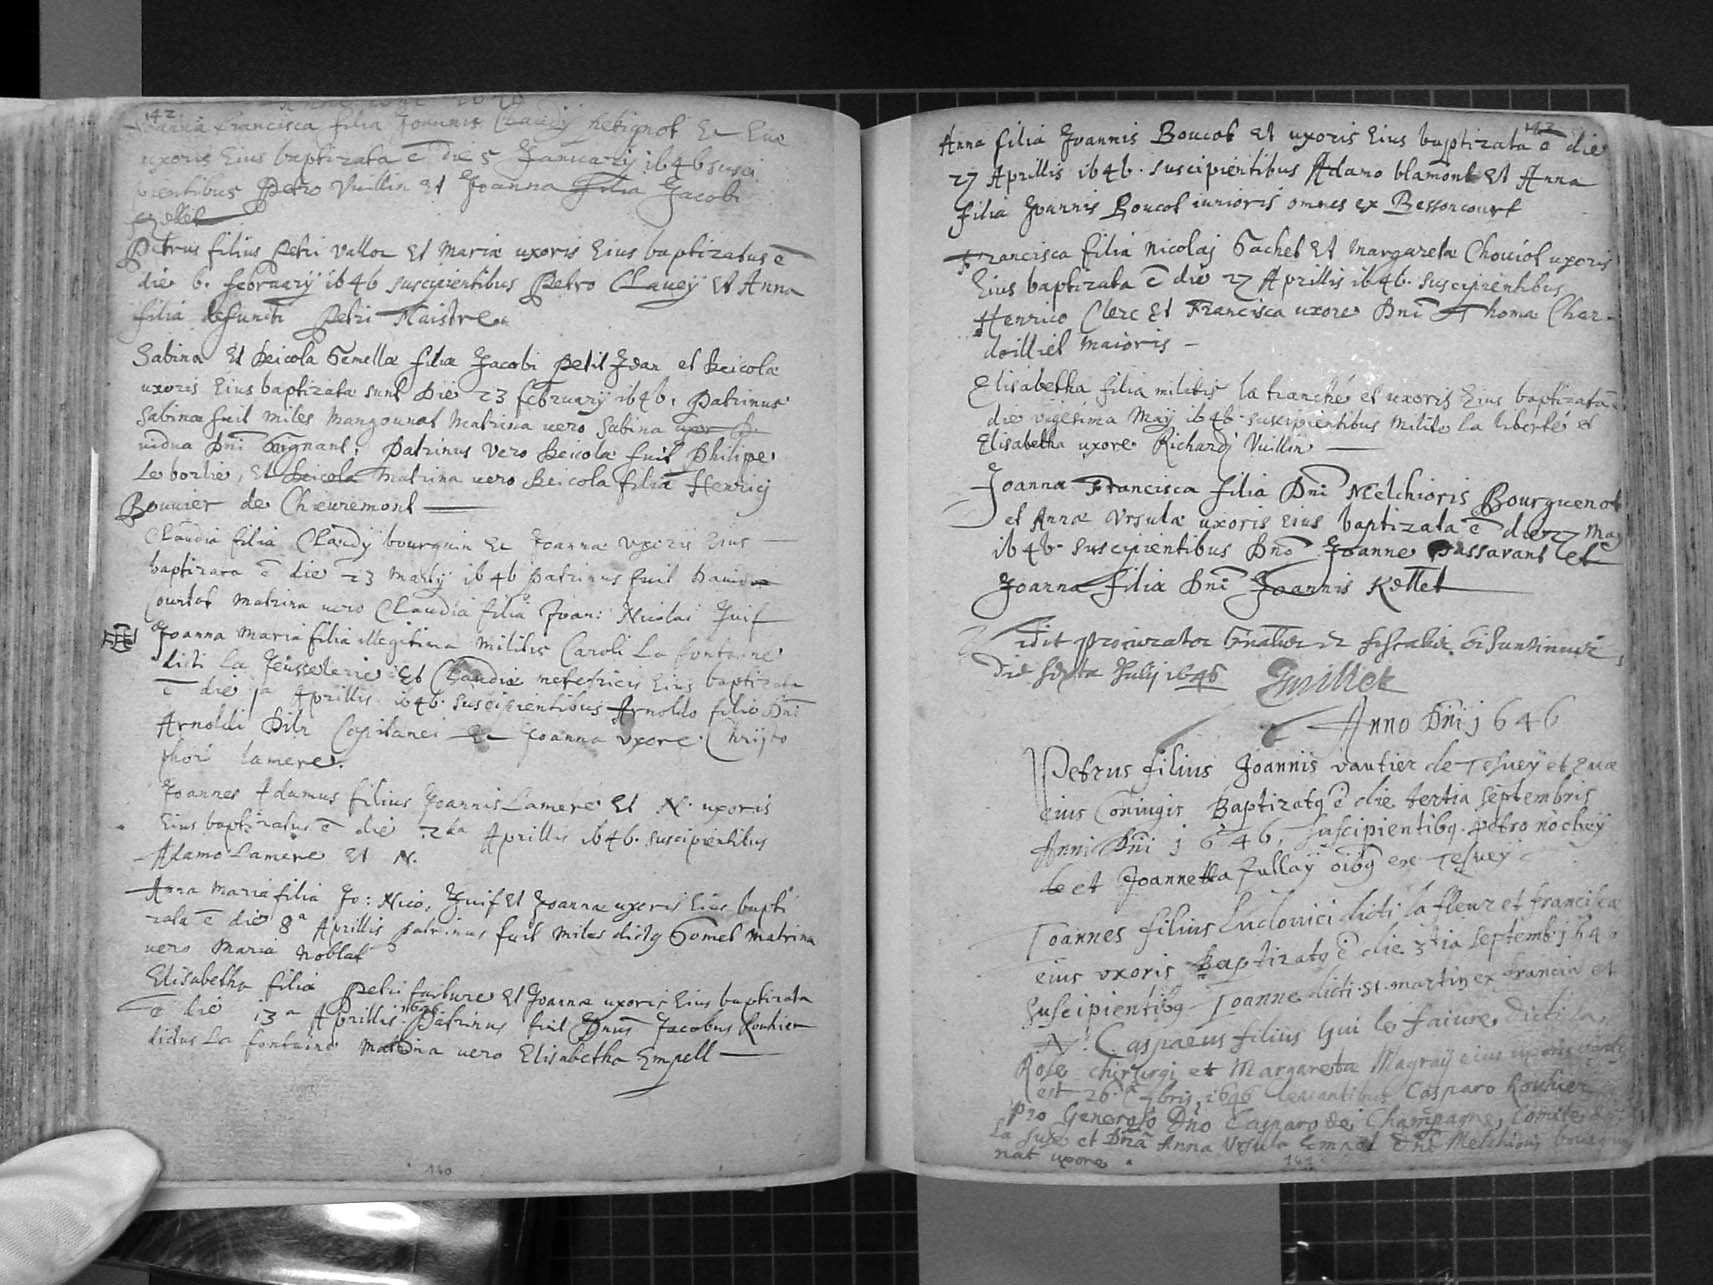 142
Joanna francisca filia Joannis Claudij hetignot et Euæ
uxoris Eius baptizata ē die 5 Januarij 1646 susci
pientibus Petro Vuillin et Joanna filia Jacobi
Petrus filius Petri Vallor Et Mariæ uxoris Eius baptizatus ē
die 6. februarij 1646 suscipientibus Petro Clauey Et Anna
filia defuncti Petri Maistre.
Sabina Et Deicola Gemellæ filiæ Jacobi Petit Jean et Deicolæ
uxoris Eius baptizatæ sunt Die 23 february 1646. Patrinus
Sabinæ fuit miles Mangounot Matrina vero Sabina
vidua Dni Patrinus vero Deicolæ fuit Philipe
Le borlie, Et Deicola Matrina vero Deicola filia Henricj
Bouuier de Cheuremont
Claudia filia Claudij bourquin Et Joannæ Vxoris Eius
baptizata ē die 23 Martij 1646 Patrinus fuit Dauid
Courtot Matrina vero Claudia filia Joan: Nicolai Juif
Joanna Maria filia illegitima Militis Caroli La fontaine
dicti La Et Claudiæ meretricis Eius baptizata
ē die 1a Aprillis 1646. suscipientibus Arnoldo filio Dni
Arnoldi Capitanei Et Joanna vxore Christo
phori Lamere.
Joannes Adamus filius Joannis Lamere Et N. uxoris
Eius baptizatus ē die 2da Aprillis 1646. suscipientibus
Adamo Lamere Et N.
Anna Maria filia Jo: Nico. Juif Et Joannæ uxoris Eius bapti
zata ē die 8a Aprillis Patrinus fuit Miles dictq Gomel Matrina
vero Maria Noblat
Elisabetha filia Petri faibure Et Joannæ uxoris Eius baptizata
ē die 13a Aprillis 1646 Patrinus fuit Dnus Jacobus Rouhier
dictus La fontaine Matrina vero Elisabetha Empell
140
Anna filia Joannis Boucot Et uxoris Eius baptizata ē die
27 Aprillis 1646. suscipientibus Adamo blamont Et Anna
filia Joannis Boucot iunioris omnes ex Bessoncourt
Francisca filia Nicolaj Gachet Et Margaretæ Chouiol uxoris
Eius baptizata ē die 27 Aprillis 1646. suscipientibus
Henrico Clerc Et Francisca uxore Dni Thomæ Char-
doilliet Maioris
Elisabetha filia militis la tranché et uxoris Eius baptizata ē
die vigesima Maij 1646. suscipientibus Milite la liberté et
Elisabetha uxore Richardj Vuillin
Joanna Francisca filia Dni Melchioris Bourguenot
et Annæ Vrsulæ uxoris eius baptizata ē die 27 Maij
1646. suscipientibus Dno Joanne Passavant Et
Joanna filia Dni Joannis Kellet
Vidit procurator
Die Julij 1646
Anno Dni 1646
Petrus filius Joannis Vautier de Tesuey et Euæ
eius Coniugis Baptizatq ē die tertia septembris
Anni Dni 1646, suscipientibq. Petro nochey
et Joannetta fullay oibq ex Tesuey
Joannes filius Ludouici dicti la fleur et franciscæ
eius vxoris Baptizatq ē die 3tia septemb. 1646
suscipientibq Joanne dicti St. martin ex francia et
N. Casparus filius Gui le faiure, dicti La
Rose chirurgi et Margaretæ Magray eius uxoris
est 26. 1646 leuantibus Casparo Rouhier
pro Generoso Dno Casparo de Champagne, Comite de
La Suse et Dna Anna Vrsula Empel Dni Melchioris bourgue
not uxore.